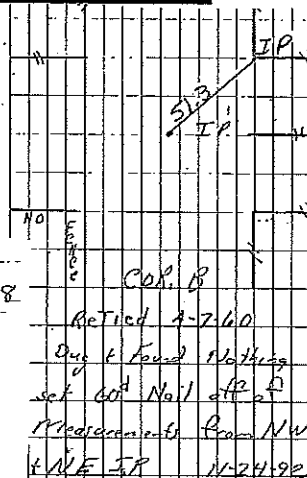 I.P.
51.3
I.P.
NO
Fence
8
COR. B
ReTied 4-7-60
Dug & Found Nothing
set 60d Nail off of
Measurements from NW
& NE I.P. 11-24-92